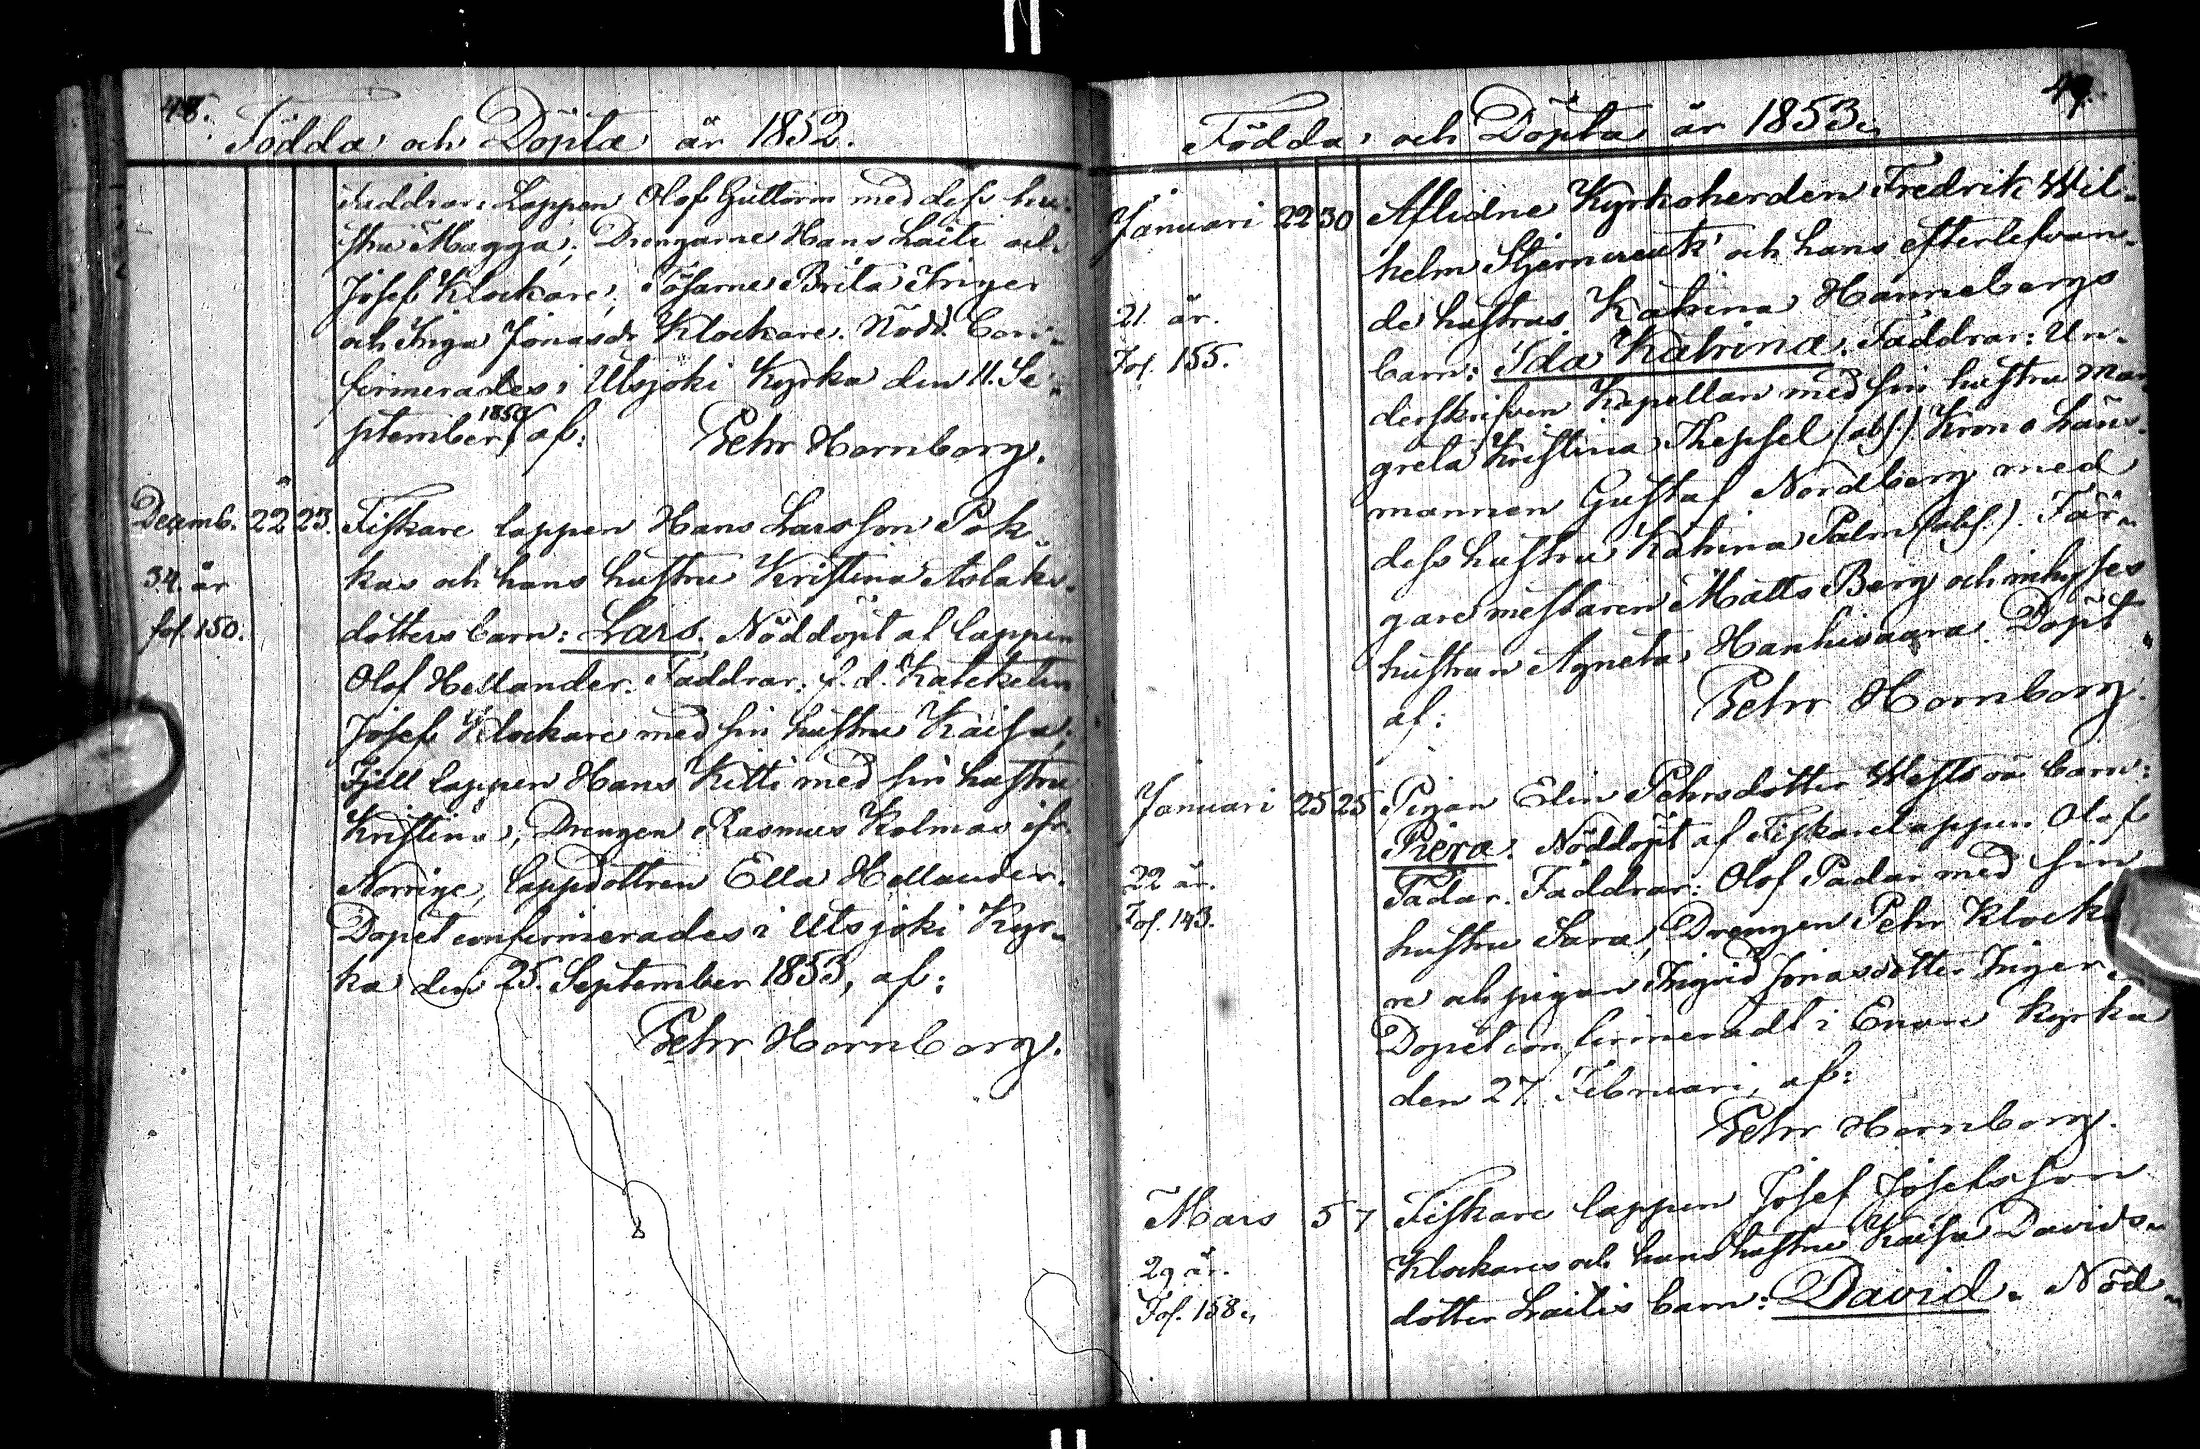 48.
Födda och Döpta år 1852.
Faddrar: Lappen Olof Guttorm med dess hu-
stru Magga; Drengarne Hans Laiti och
Josef Klockare; Pigorne Brita Inger
och Inga Jonasdr Klockare. Nödd. Con-
firmerades i Utsjoki Kyrka den 11. Se-
ptember 1853, af:
Pehr Hornborg.
Decemb. 22 23. Fiskare lappen Hans Larsson Pok-
34. år kas och hans hustru Kristina Aslaks-
fol. 150. dotters barn: Lars. Nöddöpt af lappen
Olof Hellander. Faddrar: f. d. Kateketen
Josef Klockare med sin hustru Kaisa;
Fjell lappen Hans Kitti med sin hustru
Kristina; Drengen Rasmus Kolmas ifr.
Norrige, lappdottren Ella Hellander.
Dopet confirmerades i Utsjoki Kyr-
ka den 25. September 1853, af:
Pehr Hornborg.
49.
Födda och Döpta år 1853.
Januari 22 30 Aflidne Kyrkoherden Fredrik Wil-
helm Stjerncreutz' och hans efterlefvan-
21. år. de hustrus Katrina Hannebergs
Fol. 155. barn: Ida Katrina. Faddrar: Un-
derskrifven Kapellan med sin hustru Mar
greta Kristina Thepsel (abs.) Krono Läns-
mannen Gustaf Nordberg med
dess hustru Katrina Palm (abs.). Fär-
garemästaren Matts Berg och inhyses
hustrun Agneta Hanhivaara. Döpt
af: Pehr Hornborg.
Januari 25 25 Pigan Elin Pehrsdotter barn:
Piera. Nöddöpt af Fiskarelappen Olof
22 år. Padar. Faddrar: Olof Padar med sin
Fol. 143. hustru Sara; Drengen Pehr Klocka
re och pigan Ingrid Jonasdotter Inger
Dopet confirmeradt i Enare Kyrka
den 27. Februari, af:
Pehr Hornborg.
Mars 5 7 Fiskare lappen Josef Josefsson
29 år. Klockares och hans hustru Kaisa Davids-
Fol. 158. dotter Laitis barn: David. Nöd-